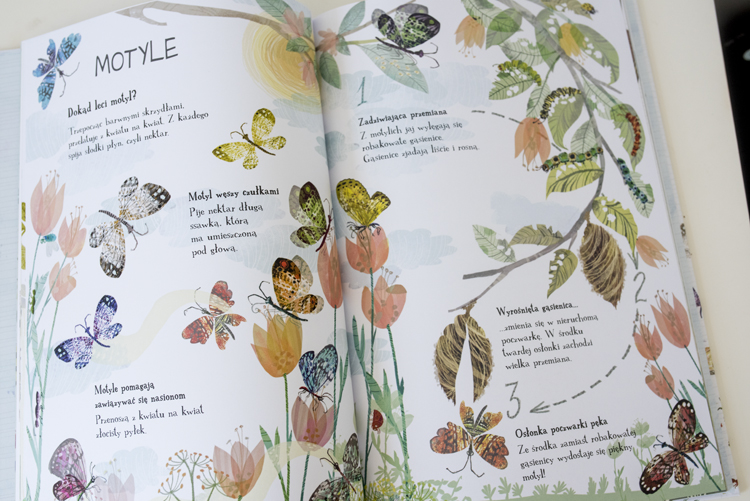 MOTYLE
Dokąd leci motyl?
Trzepocząc barwnymi skrzydłami,
przelatuje z kwiatu na kwiat. Z każdego
spija słodki płyn, czyli nektar.
Motyl węszy czułkami
Pije nektar długą
ssawką, którą
ma umieszczoną
pod głową.
Motyle pomagają
zawiązywać się nasionom
Przenoszą z kwiatu na kwiat
złocisty pyłek.
1
Zadziwiająca przemiana
Z motylich jaj wylęgają się
robakowate gąsienice.
Gąsienice zjadają liście i rosną.
2
Wyrośnięta gąsienica...
...zmienia się w nieruchomą
poczwarkę. W środku
twardej osłonki zachodzi
wielka przemiana.
3
Osłonka poczwarki pęka
Ze środka zamiast robakowatej
gąsienicy wydostaje się piękny
motyl!